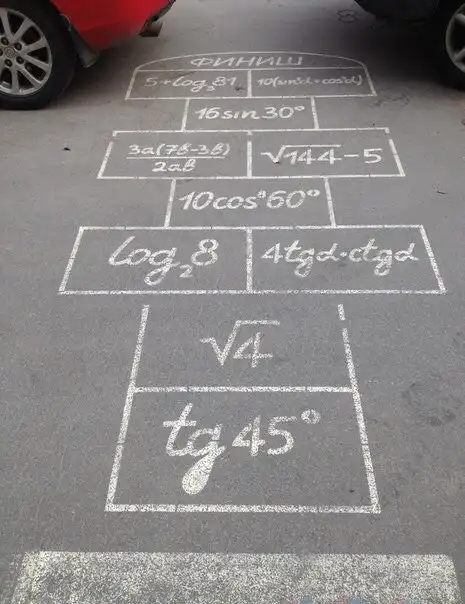 ФИНИШ
5+log₃81 10(sin²α+cos²α)
16sin30°
3a(7в-3в) √144-5
2aв
10cos°60°
log₂8 4tgα·ctgα
√4
tg45°